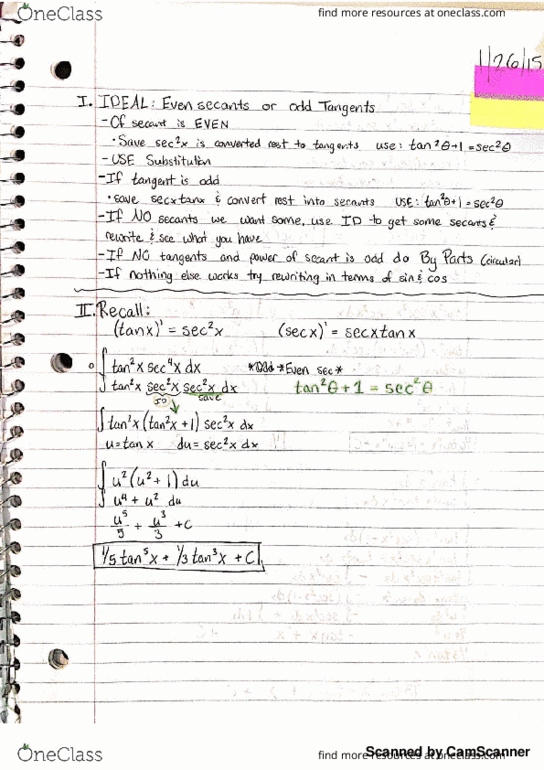 OneClass
find more resources at oneclass.com
1/26/15
I. IDEAL: Even secants or odd Tangents
- Of secant is EVEN
• Save sec²x is converted rest to tangents use: tan²θ+1 = sec²θ
- USE Substitution
- If tangent is odd
• save secxtanx & convert rest into secants USE: tan²θ+1 = sec²θ
- If NO secants we want some, use ID to get some secants &
rewrite & see what you have
- If NO tangents and power of secant is odd do By Parts (circular)
- If nothing else works try rewriting in terms of sin & cos
II. Recall:
(tanx)' = sec²x (secx)' = secxtanx
∫ tan²x sec⁴x dx *Odd → Even sec*
∫ tan²x sec²x sec²x dx tan²θ + 1 = sec²θ
so save
∫ tan²x (tan²x + 1) sec²x dx
u = tanx du = sec²x dx
∫ u² (u² + 1) du
∫ u⁴ + u² du
u⁵/5 + u³/3 + C
1/5 tan⁵x + 1/3 tan³x + C
OneClass
find more resources at oneclass.com
Scanned by CamScanner